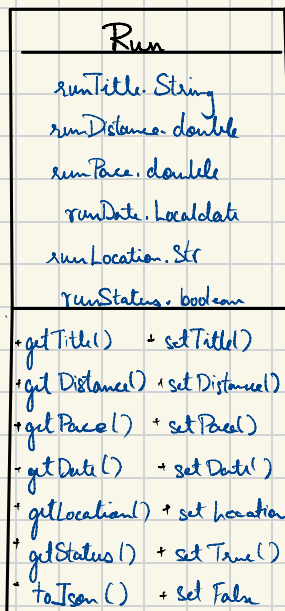 Run
runTitle. String
runDistance. double
runPace. double
runDate. Localdate
runLocation. Str
runStatus. boolean
+ getTitle() + setTitle()
+ get Distance() + set Distance()
+ getPace() + setPace()
+ getDate() + set Date()
+ getLocation() + set Location
+ getStatus() + set True()
+ toJson() + set False